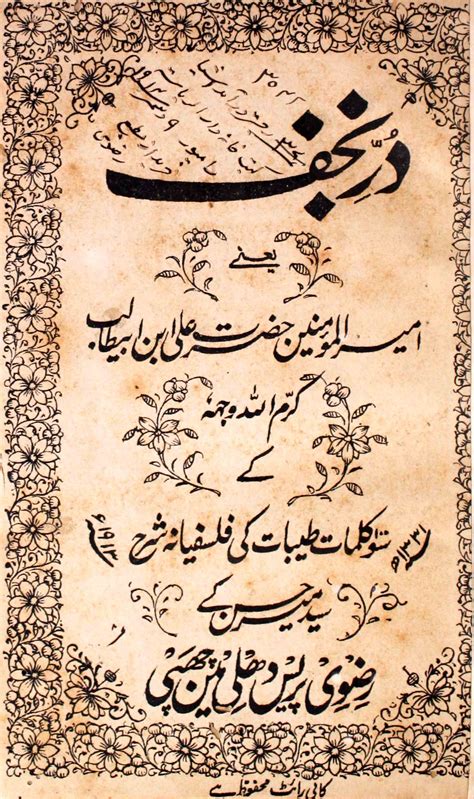 ۳۵۲۲
دُرِّ نجف
یعنے
امیر المومنین حضرت علی ابن ابیطالب
کرّم اللہ وجہہ
کے
۱۳۳۱ھ سَو کلمات طیبات کی فلسفیانہ شرح ۱۹۱۳ء
سید میر حسن کے
رضوی پریس دھلی مین چھپی
کاپی رائٹ محفوظ ہے